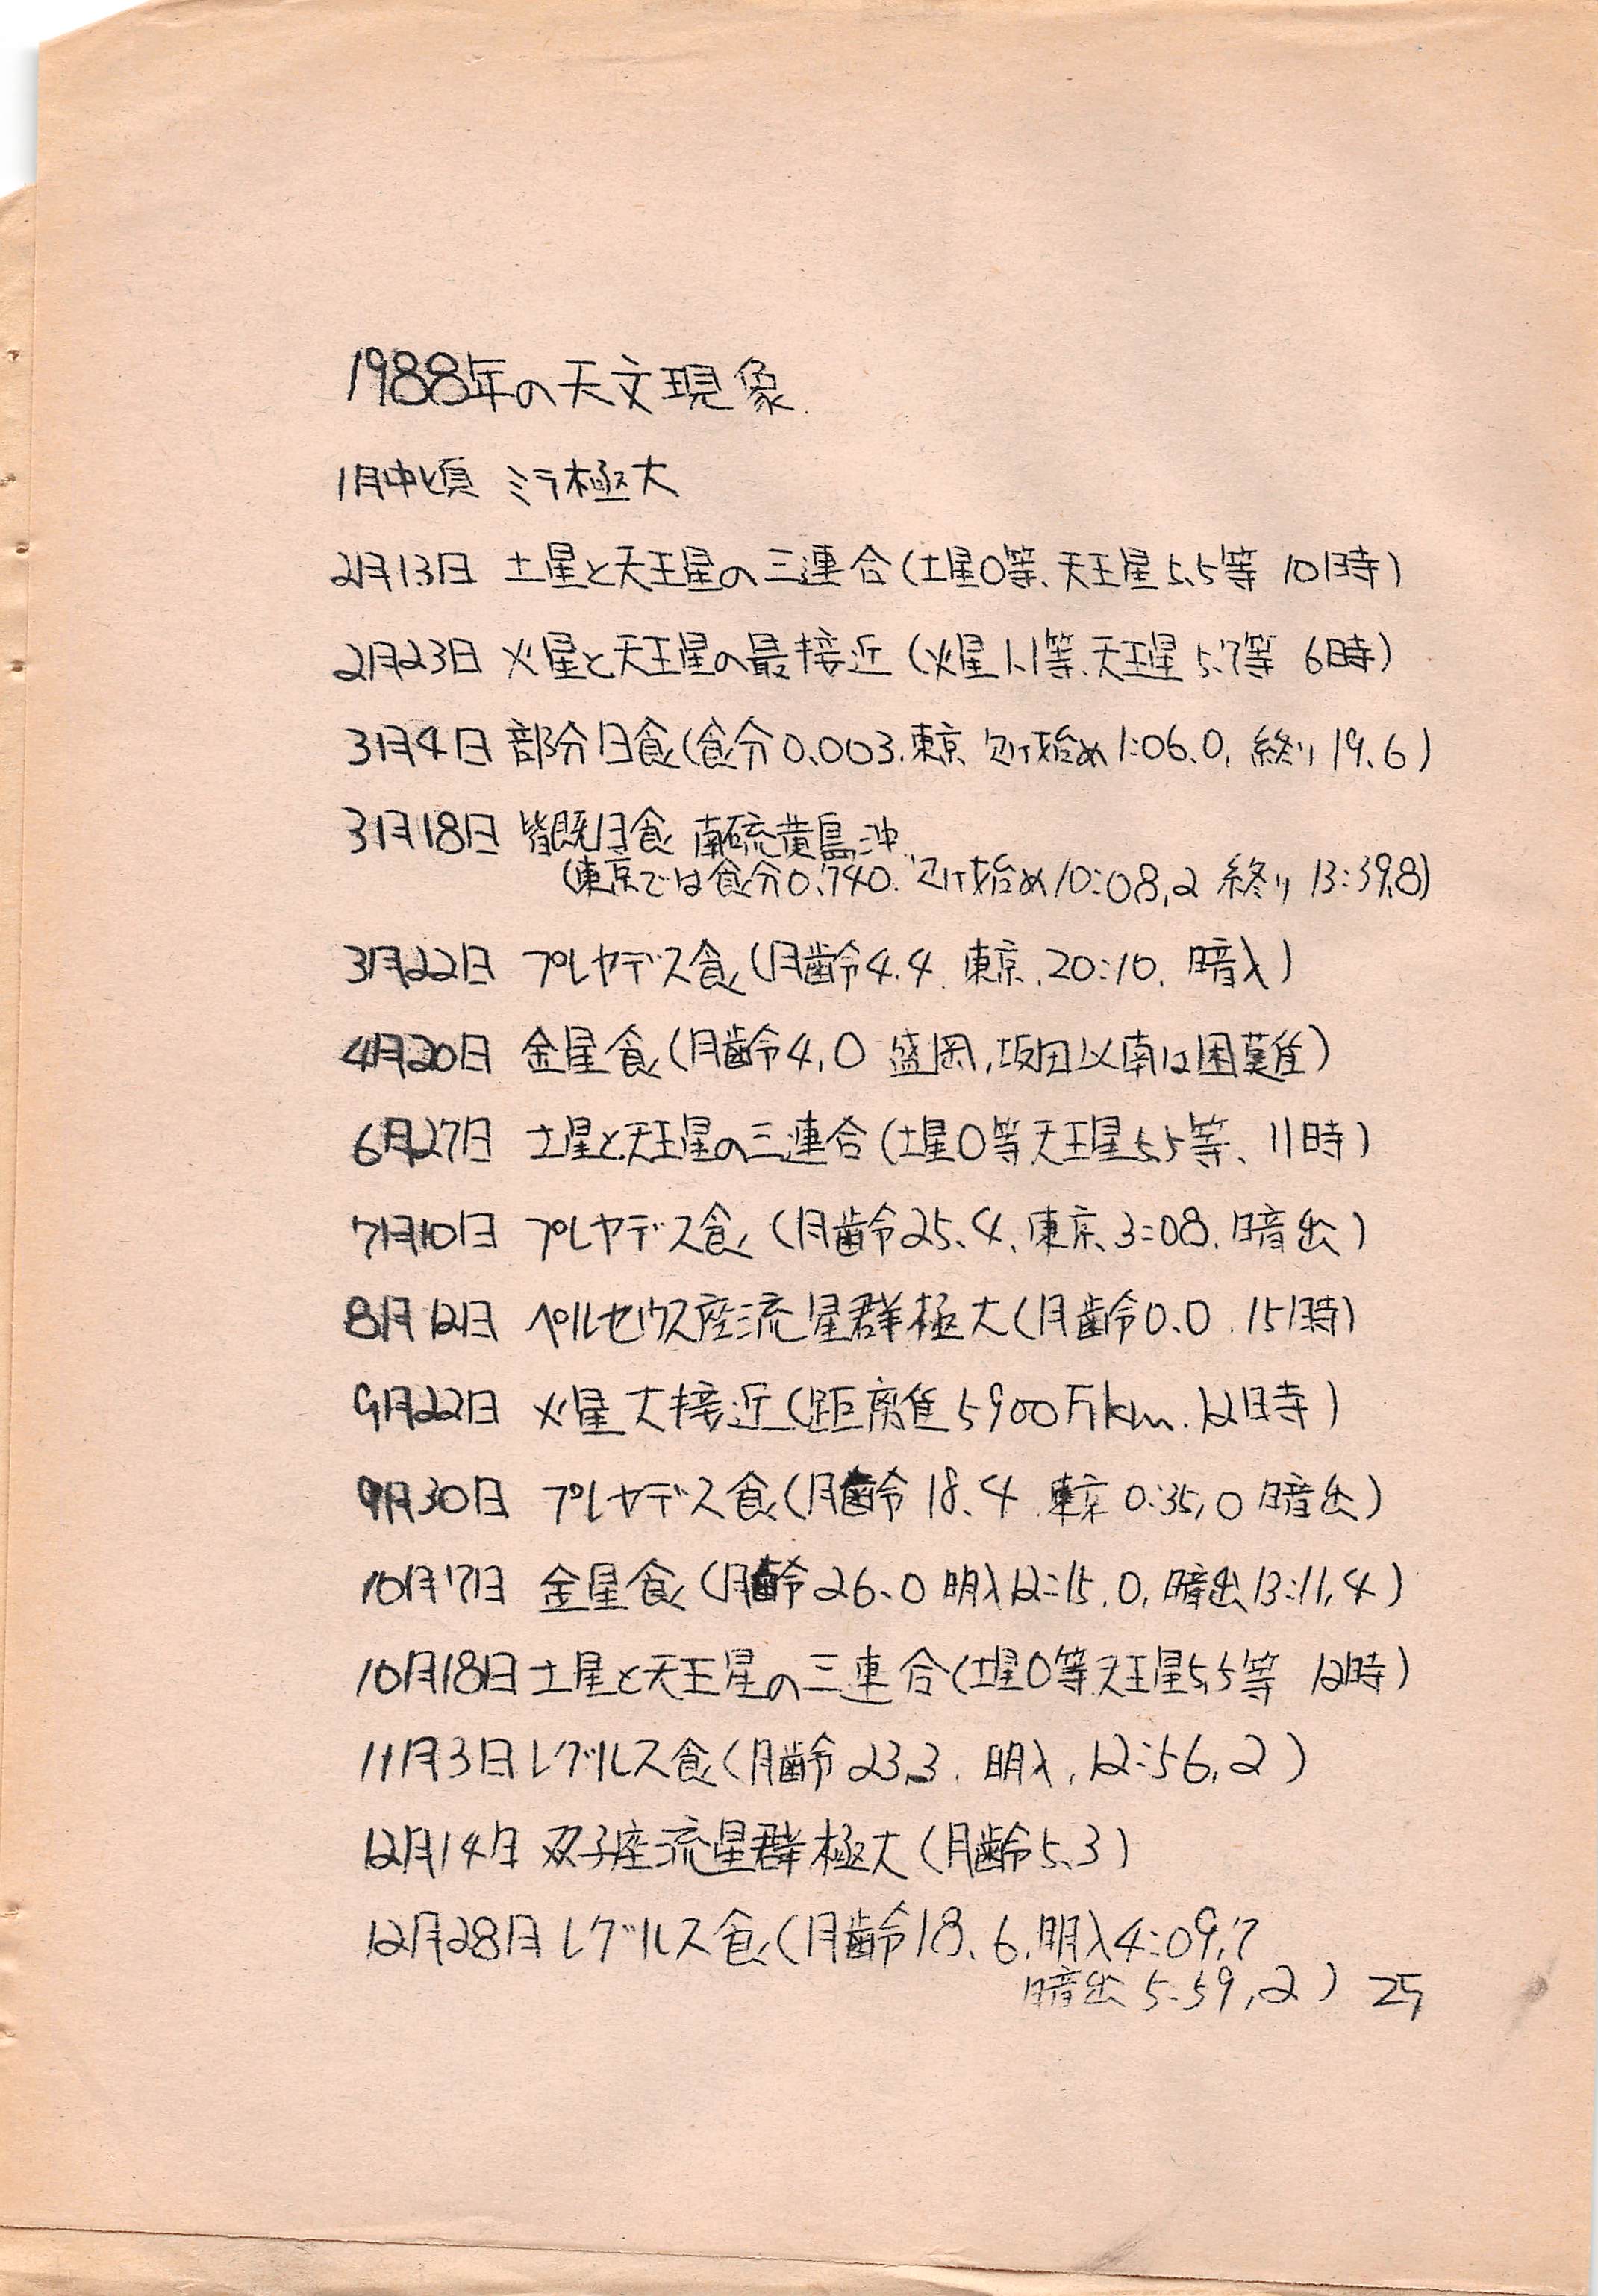 1988年の天文現象.
1月中頃 ミラ極大
2月13日 土星と天王星の三連合(土星0等、天王星5.5等 10時)
2月23日 火星と天王星の最接近(火星1.1等、天王星5.7等 6時)
3月4日 部分日食(食分0.003.東京 欠け始め1:06.0, 終り19.6)
3月18日 皆既日食 南硫黄島沖
(東京では食分0.740. 欠け始め10:08,2 終り 13:39.8)
3月22日 プレヤデス食(月齢4.4 東京.20:10. 暗入)
4月20日 金星食(月齢4,0 盛岡,坂田以南は困難)
6月27日 土星と天王星の三連合(土星0等天王星5.5等、11時)
7月10日 プレヤデス食(月齢25.4、東京、3:08.暗出)
8月12日 ペルセウス座流星群極大(月齢0.0.15時)
9月22日 火星大接近(距離5900万km.12時)
9月30日 プレヤデス食(月齢18.4.東京0:35,0暗出)
10月17日 金星食(月齢26.0明入12:15.0,暗出13:11,4)
10月18日 土星と天王星の三連合(土星0等天王星5.5等 12時)
11月3日 レグルス食(月齢23.3.明入,12:56,2)
12月14日 双子座流星群極大(月齢5.3)
12月28日 レグルス食(月齢18.6.明入4:09,7
暗出5:59,2) 25